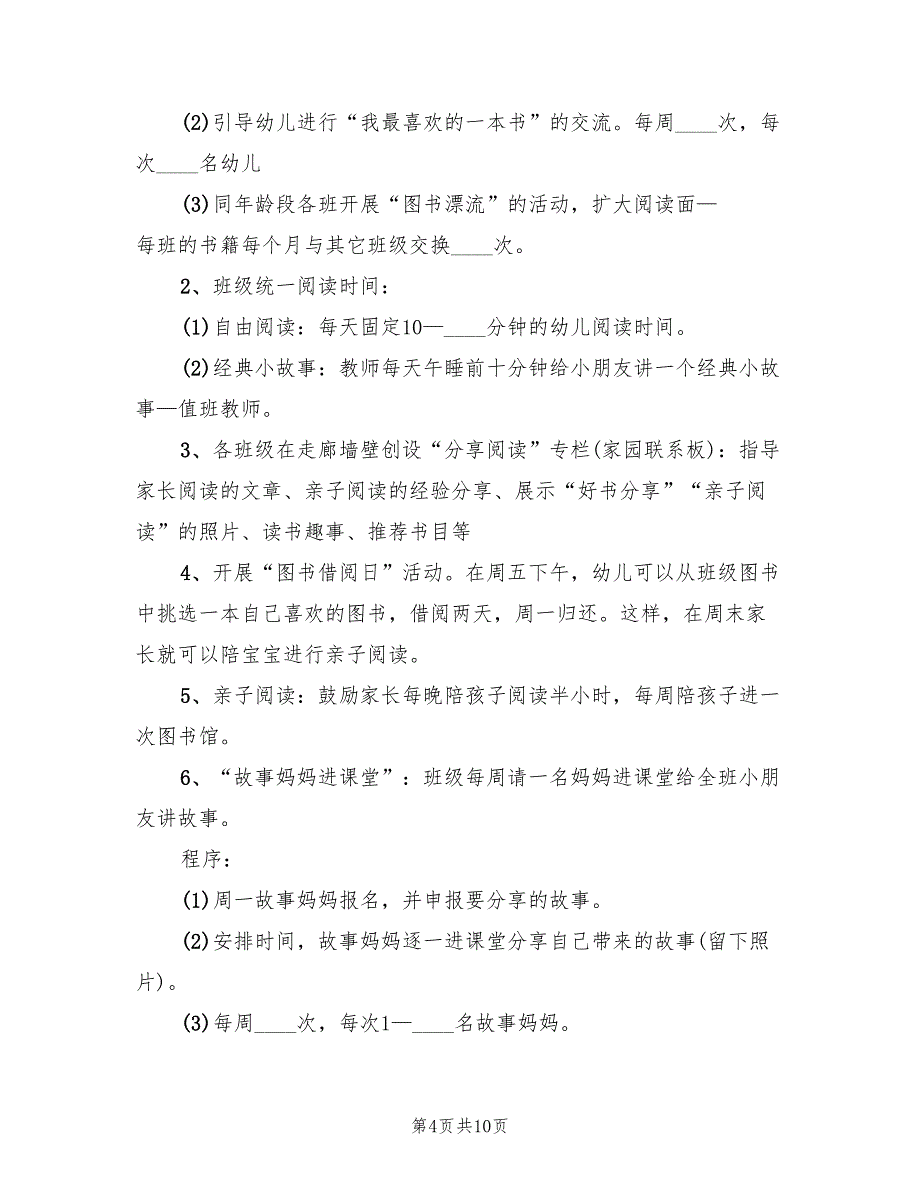 (2)引导幼儿进行“我最喜欢的一本书”的交流。每周____次，每
次____名幼儿
(3)同年龄段各班开展“图书漂流”的活动，扩大阅读面—
每班的书籍每个月与其它班级交换____次。
2、班级统一阅读时间：
(1)自由阅读：每天固定10—____分钟的幼儿阅读时间。
(2)经典小故事：教师每天午睡前十分钟给小朋友讲一个经典小故
事—值班教师。
3、各班级在走廊墙壁创设“分享阅读”专栏(家园联系板)：指导
家长阅读的文章、亲子阅读的经验分享、展示“好书分享”“亲子阅
读”的照片、读书趣事、推荐书目等
4、开展“图书借阅日”活动。在周五下午，幼儿可以从班级图书
中挑选一本自己喜欢的图书，借阅两天，周一归还。这样，在周末家
长就可以陪宝宝进行亲子阅读。
5、亲子阅读：鼓励家长每晚陪孩子阅读半小时，每周陪孩子进一
次图书馆。
6、“故事妈妈进课堂”：班级每周请一名妈妈进课堂给全班小朋
友讲故事。
程序：
(1)周一故事妈妈报名，并申报要分享的故事。
(2)安排时间，故事妈妈逐一进课堂分享自己带来的故事(留下照
片)。
(3)每周____次，每次1—____名故事妈妈。
第4页共10页